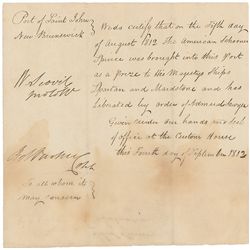 Port of Saint John
New Brunswick
We do certify that on the Fifth day
of August 1812 The American Schooner
was brought into this Port
as a prize to His Majestys Ships
Spartan and Maidstone and has
liberated by order of
Given under our hands and Seal
of office at the Custom House
this Fourth day of September 1812
W Scovil
To all whom it
may concern